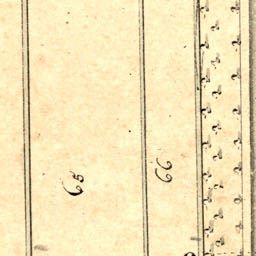 65
66